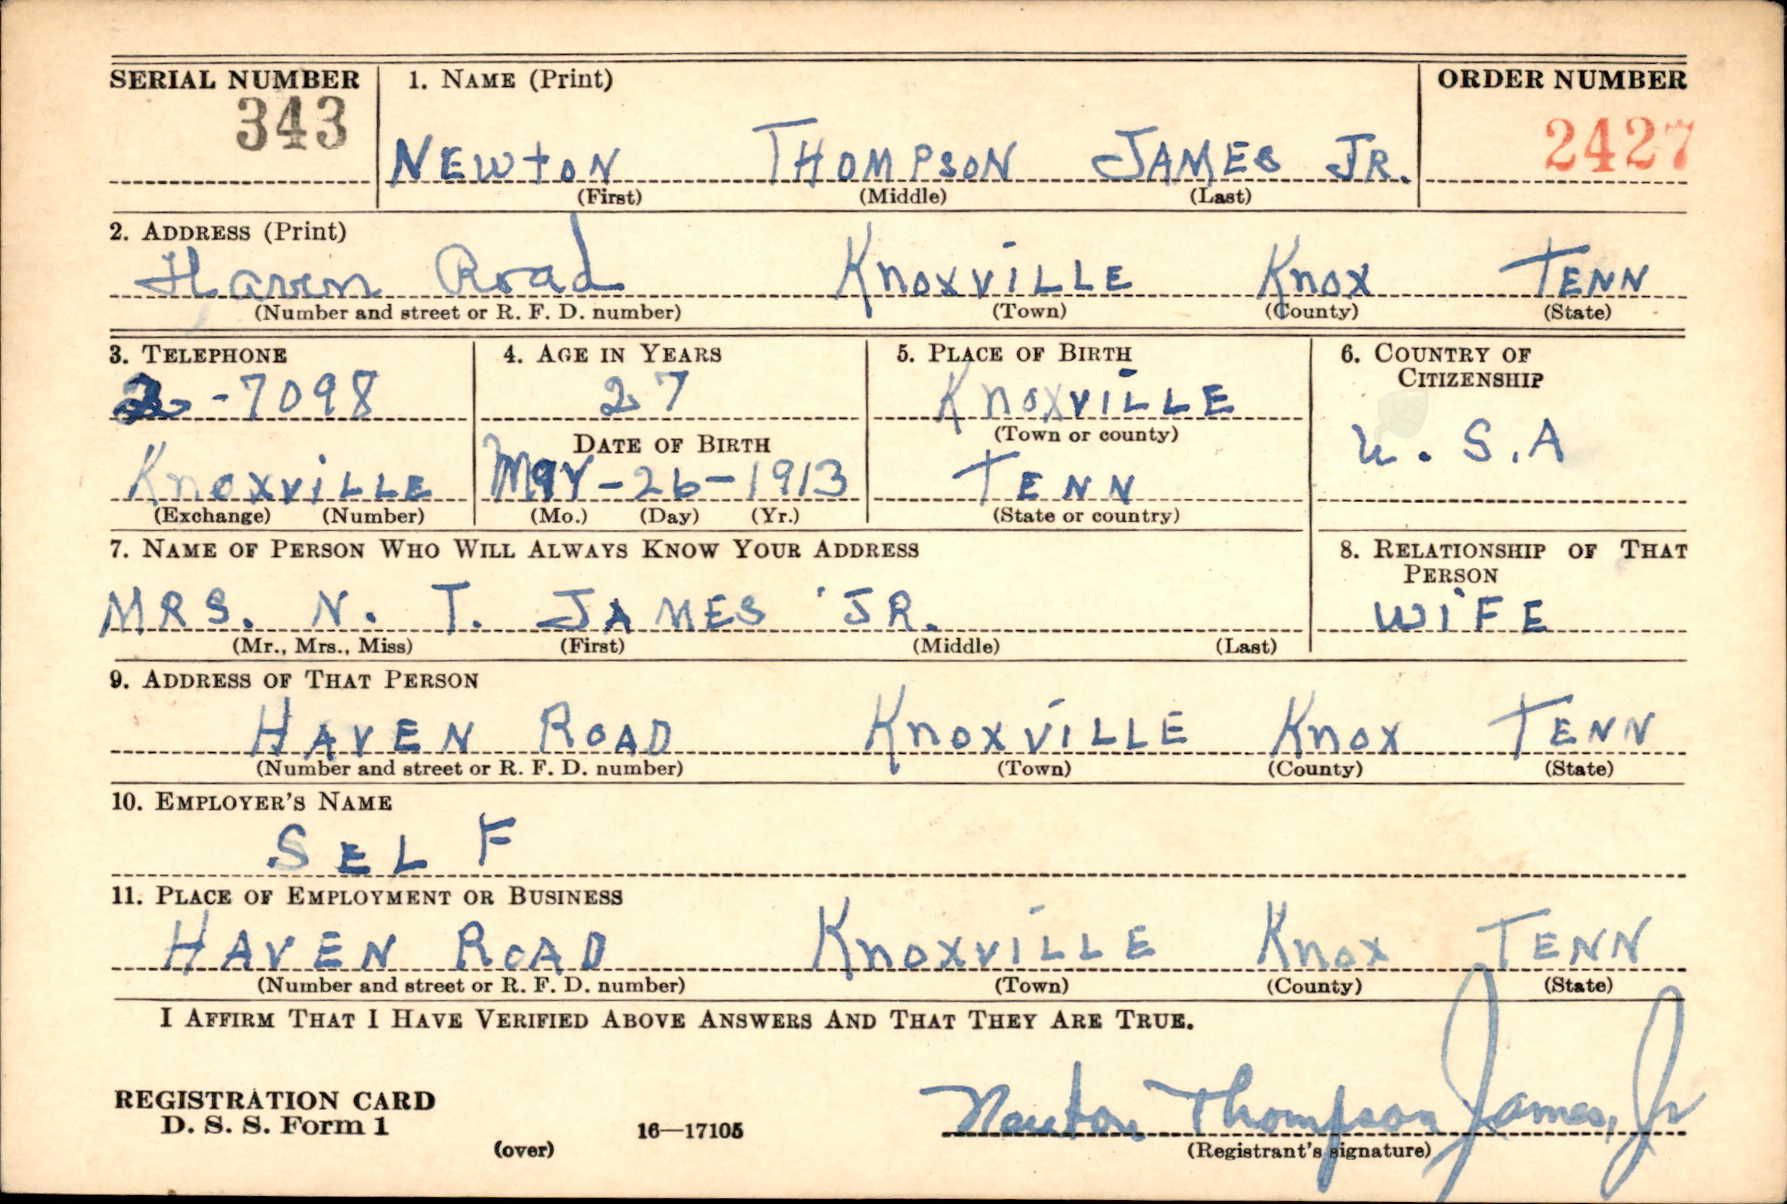 SERIAL NUMBER 1. NAME (Print) ORDER NUMBER
343 NEWTON THOMPSON JAMES JR. 2427
(First) (Middle) (Last)
2. ADDRESS (Print)
Haven Road KNOXVILLE KNOX TENN
(Number and street or R. F. D. number) (Town) (County) (State)
3. TELEPHONE 4. AGE IN YEARS 5. PLACE OF BIRTH 6. COUNTRY OF
CITIZENSHIP
2-7098 27 KNOXVILLE
DATE OF BIRTH (Town or county) U.S.A
KNOXVILLE MAY-26-1913 TENN
(Exchange) (Number) (Mo.) (Day) (Yr.) (State or country)
7. NAME OF PERSON WHO WILL ALWAYS KNOW YOUR ADDRESS 8. RELATIONSHIP OF THAT
PERSON
MRS. N. T. JAMES JR. WIFE
(Mr., Mrs., Miss) (First) (Middle) (Last)
9. ADDRESS OF THAT PERSON
HAVEN ROAD KNOXVILLE KNOX TENN
(Number and street or R. F. D. number) (Town) (County) (State)
10. EMPLOYER'S NAME
SELF
11. PLACE OF EMPLOYMENT OR BUSINESS
HAVEN ROAD KNOXVILLE KNOX TENN
(Number and street or R. F. D. number) (Town) (County) (State)
I AFFIRM THAT I HAVE VERIFIED ABOVE ANSWERS AND THAT THEY ARE TRUE.
REGISTRATION CARD
D. S. S. Form 1 Newton Thompson James, Jr
(over) 16—17105 (Registrant's signature)